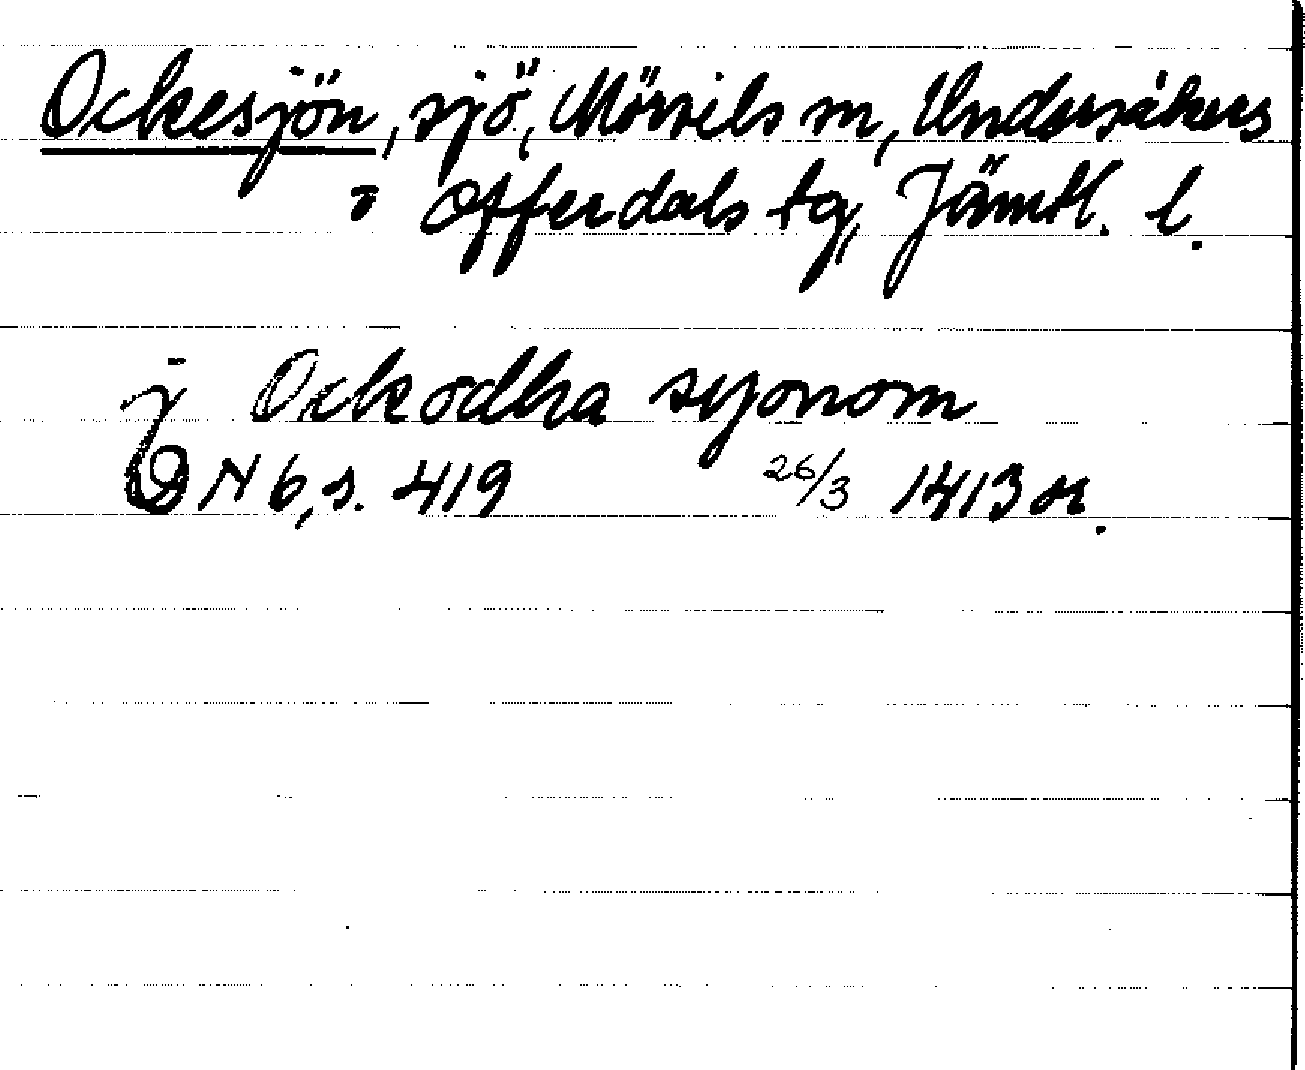 Ockesjön, sjö, Mörsils sn, Undersåkers
o Offerdals tg, Jämtl. l.
j Ockodha syonom
DN 6, s. 419 26/3 1413 or.